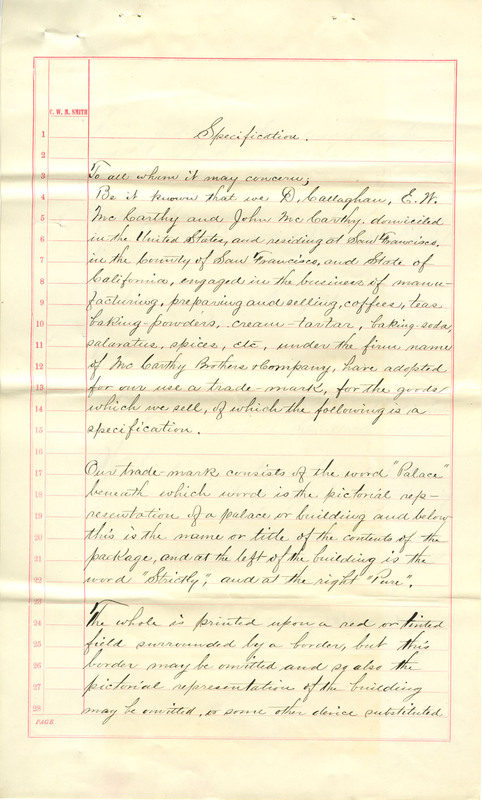 C. W. M. SMITH
1 Specification.
2
3 To all whom it may concern;
4 Be it known that we D. Callaghan, E. W.
5 McCarthy and John McCarthy. domiciled
6 in the United States, and residing at San Francisco,
7 in the County of San Francisco, and State of
8 California, engaged in the business of manu-
9 facturing, preparing and selling, coffees, teas
10 baking-powders, cream-tartar, baking-soda,
11 salaratus, spices, etc, under the firm name
12 of McCarthy Brothers & Company, have adopted
13 for our use a trade-mark, for the goods
14 which we sell, of which the following is a
15 specification.
16
17 Our trade-mark consists of the word "Palace"
18 beneath which word is the pictorial rep-
19 resentation of a palace or building and below
20 this is the name or title of the contents of the
21 package, and at the left of the building is the
22 word "Strictly", and at the right "Pure".
23
24 The whole is printed upon a red or tinted
25 field surrounded by a border, but this
26 border may be omitted and so also the
27 pictorial representation of the building
28 may be omitted, or some other device substituted
PAGE